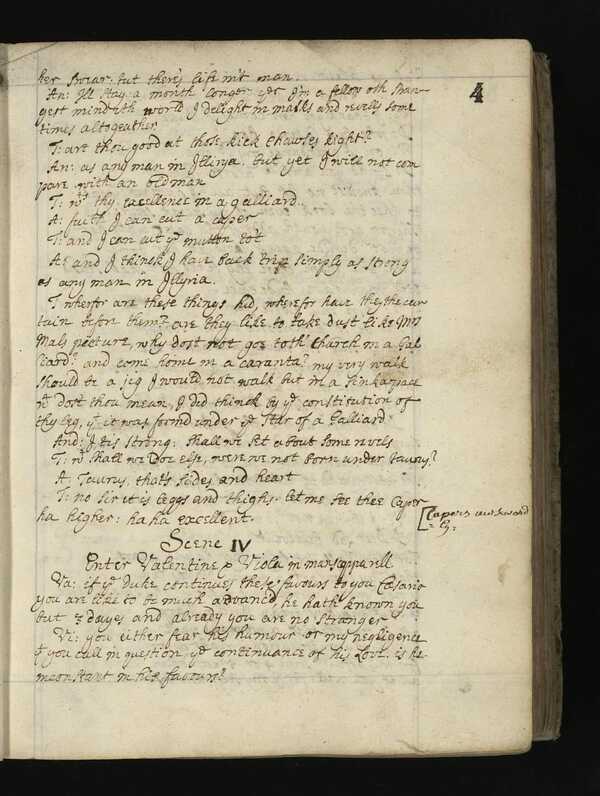 her swear, but there's life in't man.
4
An: Ill stay a month longer yet I'm a fellow oth stran-
gest mind ith world I delight in masks and revells some
times altogeather
T: art thou good at those kick shawses kight?
An: as any man in Illirya, but yet I will not com
pare with an old man
T: wt thy excellence in a galliard.
A: faith I can cut a caper
T: and I can cut ye mutton to't
A: and I thinck I have back trip simply as strong
as any man in Illyria.
T wherfor are these things hid, wherefor have they the cur
tain before them? are they like to take dust like Mrs
Mals pecture, why dost not goe toth church in a Gal
liard? and come home in a caranta? my very walk
should be a jeg I would not walk but in a sinkapace
wt dost thou mean, I did thinck by ye constitution of
thy leg, yt it was formd under ye star of a Galliard
And: I tis strong: shall we set about some revels
T: wt shall we doe else, were we not born under taurus?
A: Taurus, thats sides and heart
T: no sir it is leggs and thighs. let me see thee Caper
ha higher: ha ha excellent.
[Capers aukward
= ly.
Scene IV
Enter Valentine & Viola in mans apparell
Va: if ye Duke continues these favours to you Cesario
you are like to be much advanced, he hath known you
but 3 dayes and already you are no stranger
Vi: you either fear his humour or my negligence
yt you call in question ye continuance of his Love. is he
inconstant in his favours?